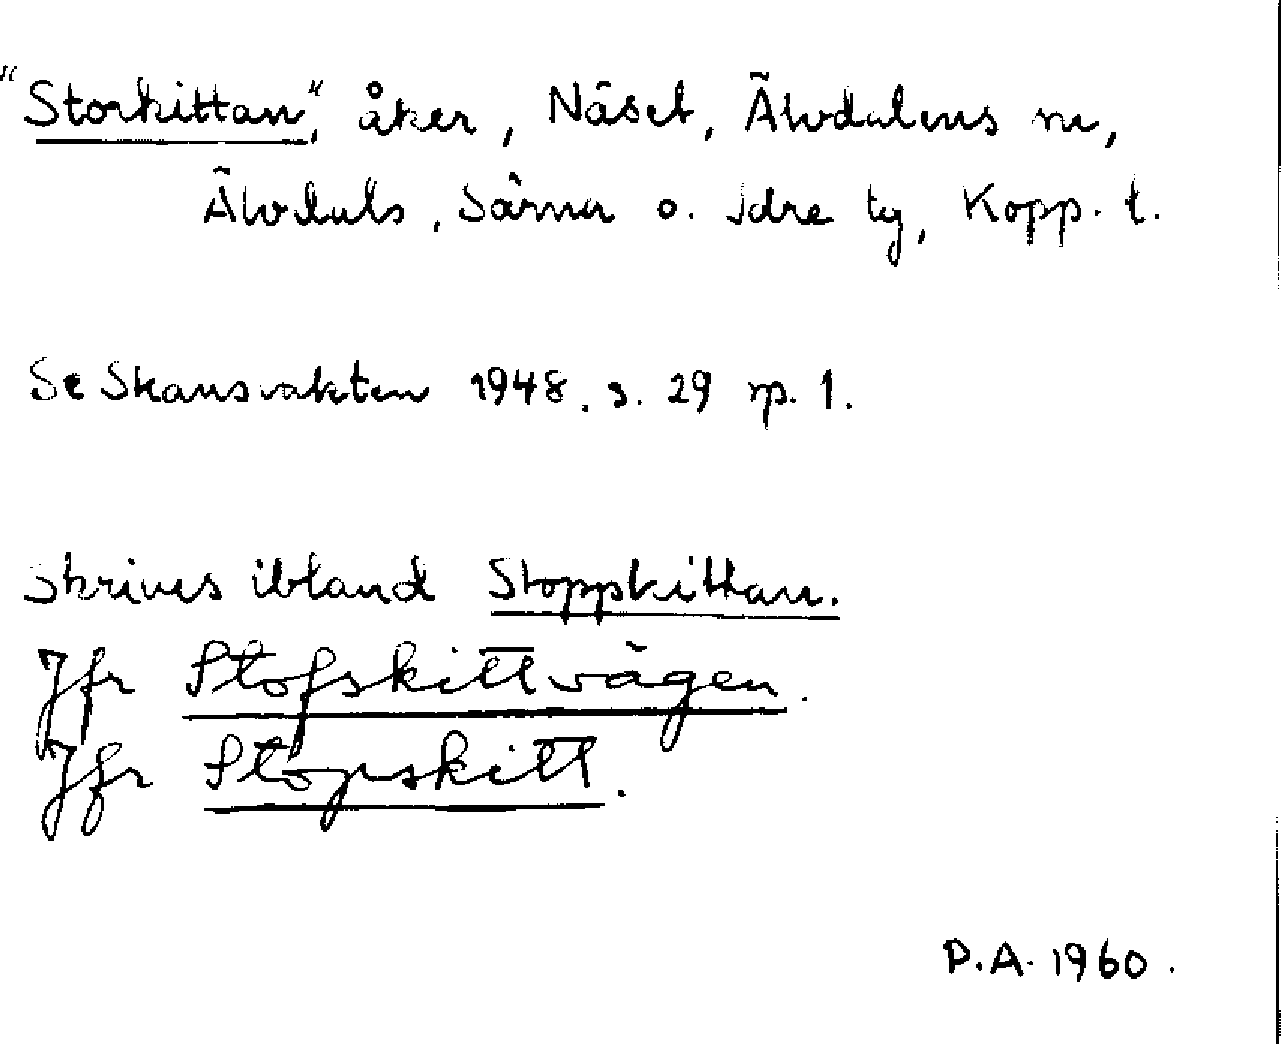 "Storkittan", åker, Näset, Älvdalens sn,
Älvdals, Särna o. Idre tg, Kopp. l.
Se Skansvakten 1948. s. 29 sp. 1.
Skrives ibland Stoppkittan.
Jfr Stofskittvägen.
Jfr Stopskitt.
P.A. 1960.